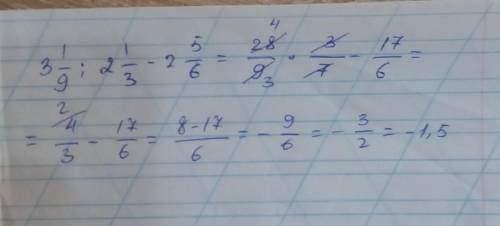 3 1/9 : 2 1/3 - 2 5/6 = 28/9 · 3/7 - 17/6 = 4 3
= 4/3 - 17/6 = (8-17)/6 = - 9/6 = - 3/2 = -1,5 2